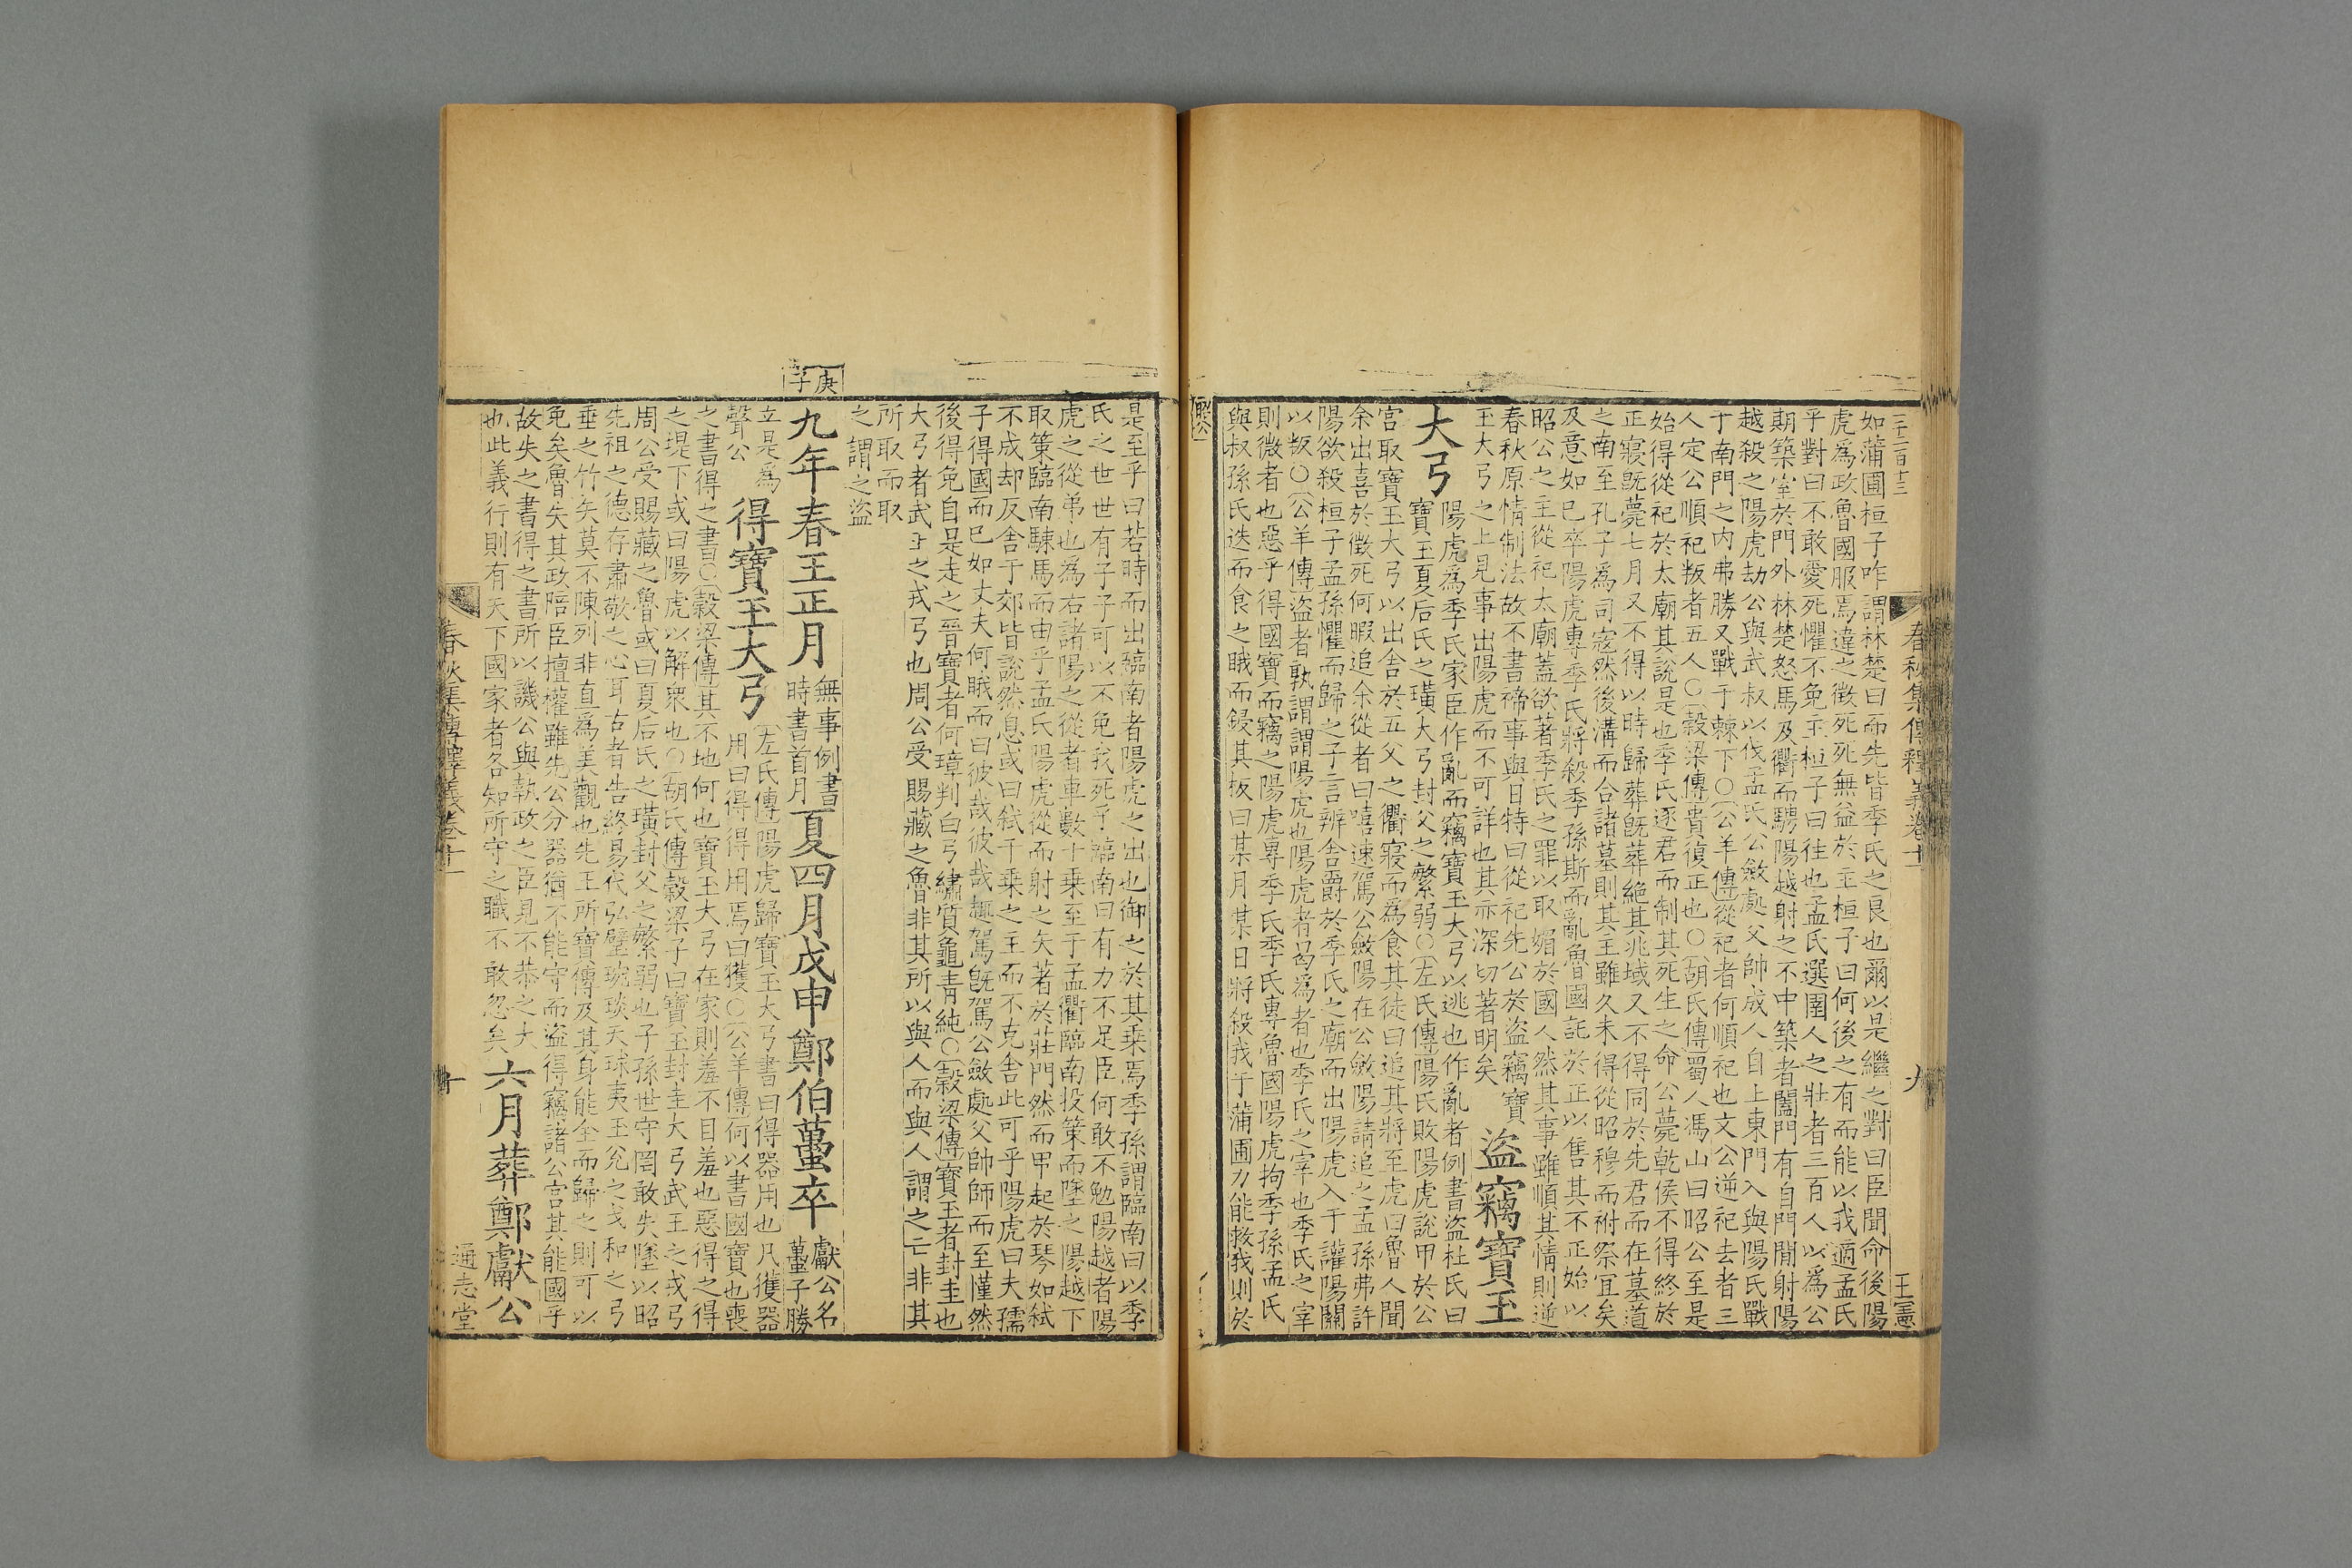 三十二百十三
春秋集傳釋義卷十一
九
王憲
如蒲圃桓子咋謂林楚曰而先皆季氏之良也爾以是繼之對曰臣聞命後陽
虎為政魯國服焉違之徵死死無益於主桓子曰何後之有而能以我適孟氏
乎對曰不敢愛死懼不免主桓子曰往也孟氏選圉人之壯者三百人以為公
期築室於門外林楚怒馬及衢而騁陽越射之不中築者闔門有自門間射陽
越殺之陽虎劫公與武叔以伐孟氏公斂處父帥成人自上東門入與陽氏戰
于南門之內弗勝又戰于棘下○公羊傳從祀者何順祀也文公逆祀去者三
人定公順祀叛者五人○穀梁傳貴復正也○胡氏傳蜀人馮山曰昭公至是
始得從祀於太廟其說是也季氏逐君而制其死生之命公薨乾侯不得終於
正寢旣薨七月又不得以時歸葬旣葬絕其兆域又不得同於先君而在墓道
之南至孔子為司寇然後溝而合諸墓則其主雖久未得從昭穆而祔祭宜矣
及意如已卒陽虎專季氏將殺季孫斯而亂魯國託於正以售其不正始以
昭公之主從祀太廟蓋欲著季氏之罪以取媚於國人然其事雖順其情則逆
春秋原情制法故不書禘事與日特曰從祀先公於盜竊寶
玉大弓之上見事出陽虎而不可詳也其示深切著明矣 盜竊寶玉
大弓 陽虎為季氏家臣作亂而竊寶玉大弓以逃也作亂者例書盜杜氏曰
寶玉夏后氏之璜大弓封父之繁弱○左氏傳陽氏敗陽虎說甲於公
宮取寶玉大弓以出舍於五父之衢寢而為食其徒曰追其將至虎曰魯人聞
余出喜於徵死何暇追余從者曰嘻速駕公斂陽在公斂陽請追之孟孫弗許
陽欲殺桓子孟孫懼而歸之子言辨舍爵於季氏之廟而出陽虎入于讙陽關
以叛○公羊傳盜者孰謂謂陽虎也陽虎者曷為者也季氏之宰也季氏之宰
則微者也惡乎得國寶而竊之陽虎專季氏季氏專魯國陽虎拘季孫孟氏
與叔孫氏迭而食之睋而鋟其板曰某月某日將殺我于蒲圃力能救我則於
是至乎曰若時而出臨南者陽虎之出也御之於其乘焉季孫謂臨南曰以季
氏之世世有子子可以不免我死乎臨南曰有力不足臣何敢不勉陽越者陽
虎之從弟也為右諸陽之從者車數十乘至于孟衢臨南投策而墜之陽越下
取策臨南駷馬而由乎孟氏陽虎從而射之矢著於莊門然而甲起於琴如弒
不成却反舍于郊皆說然息或曰弒千乘之主而不克舍此可乎陽虎曰夫孺
子得國而已如丈夫何睋而曰彼哉彼哉趣駕旣駕公斂處父帥師而至慬然
後得免自是走之晉寶者何璋判白弓繡質龜青純○穀梁傳寶玉者封圭也
大弓者武王之戎弓也周公受賜藏之魯非其所以與人而與人謂之亡非其
所取而取
之謂之盜
庚子
九年春王正月 無事例書
時書首月 夏四月戊申鄭伯蠆卒 獻公名
蠆子勝
立是為
聲公 得寶玉大弓 左氏傳陽虎歸寶玉大弓書曰得器用也凡獲器
用曰得得用焉曰獲○公羊傳何以書國寶也喪
之書得之書○穀梁傳其不地何也寶玉大弓在家則羞不目羞也惡得之得
之堤下或曰陽虎以解衆也○胡氏傳穀梁子曰寶玉封圭大弓武王之戎弓
周公受賜藏之魯或曰夏后氏之璜封父之繁弱也子孫世守罔敢失墜以昭
先祖之德存肅敬之心耳古者告終易代弘璧琬琰天球夷玉兌之戈和之弓
垂之竹矢莫不陳列非直為美觀也先王所寶傳及其身能全而歸之則可以
免矣魯失其政陪臣擅權雖先公分器猶不能守而盜得竊諸公宮其能國乎
故失之書得之書所以譏公與執政之臣見不恭之大
也此義行則有天下國家者各知所守之職不敢忽矣 六月葬鄭獻公
春秋集傳釋義卷十一
十
通志堂